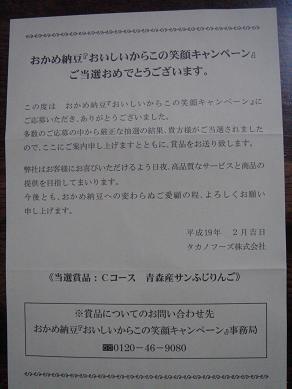 おかめ納豆『おいしいからこの笑顔キャンペーン』
ご当選おめでとうございます。
この度は　おかめ納豆『おいしいからこの笑顔キャンペーン』に
ご応募いただき、ありがとうございました。
多数のご応募の中から厳正な抽選の結果、貴方様がご当選されました
ので、ここにご案内申し上げますとともに、賞品をお送り致します。
弊社はお客様にお喜びいただけるよう日夜、高品質なサービスと商品の
提供を目指してまいります。
今後とも、おかめ納豆への変わらぬご愛顧の程、よろしくお願い
申し上げます。
平成19年　2月吉日
タカノフーズ株式会社
《当選賞品：Cコース　青森産サンふじりんご》
※賞品についてのお問い合わせ先
おかめ納豆『おいしいからこの笑顔キャンペーン』事務局
0120－46－9080